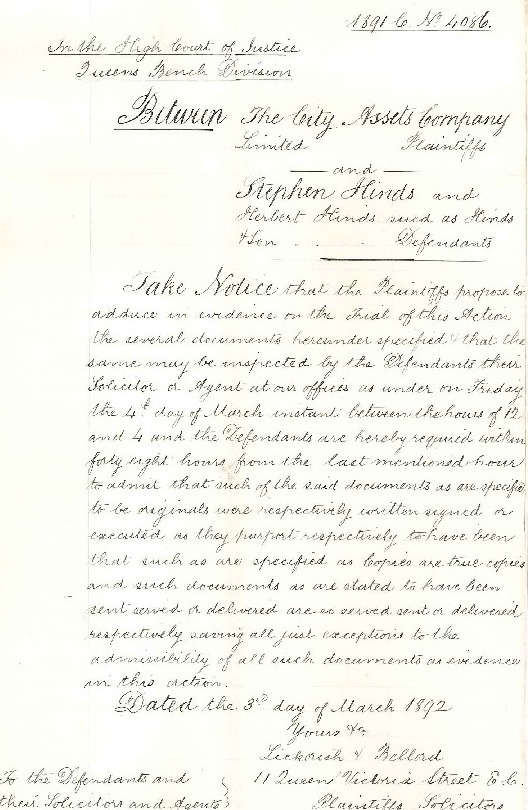 1891 C. No. 4086.
In the High Court of Justice
Queens Bench Division
Between The City Assets Company
Limited Plaintiffs
and
Stephen Hinds and
Herbert Hinds sued as Hinds
& Son . . . Defendants
Take Notice that the Plaintiffs propose to
adduce in evidence on the Trial of this Action
the several documents hereunder specified & that the
same may be inspected by the Defendants their
Solicitor or Agent at our offices as under on Friday
the 4th day of March instant between the hours of 12
and 4 and the Defendants are hereby required within
forty eight hours from the last mentioned hour
to admit that such of the said documents as are specified
to be originals were respectively written signed or
executed as they purport respectively to have been
that such as are specified as Copies are true copies
and such documents as are stated to have been
sent served or delivered are so served sent or delivered
respectively saving all just exceptions to the
admissibility of all such documents as evidence
in this action.
Dated the 3rd day of March 1892
Yours &c
Lickorish & Bellord
11 Queen Victoria Street E.C.
To the Defendants and
their Solicitors and Agents
Plaintiffs Solicitors